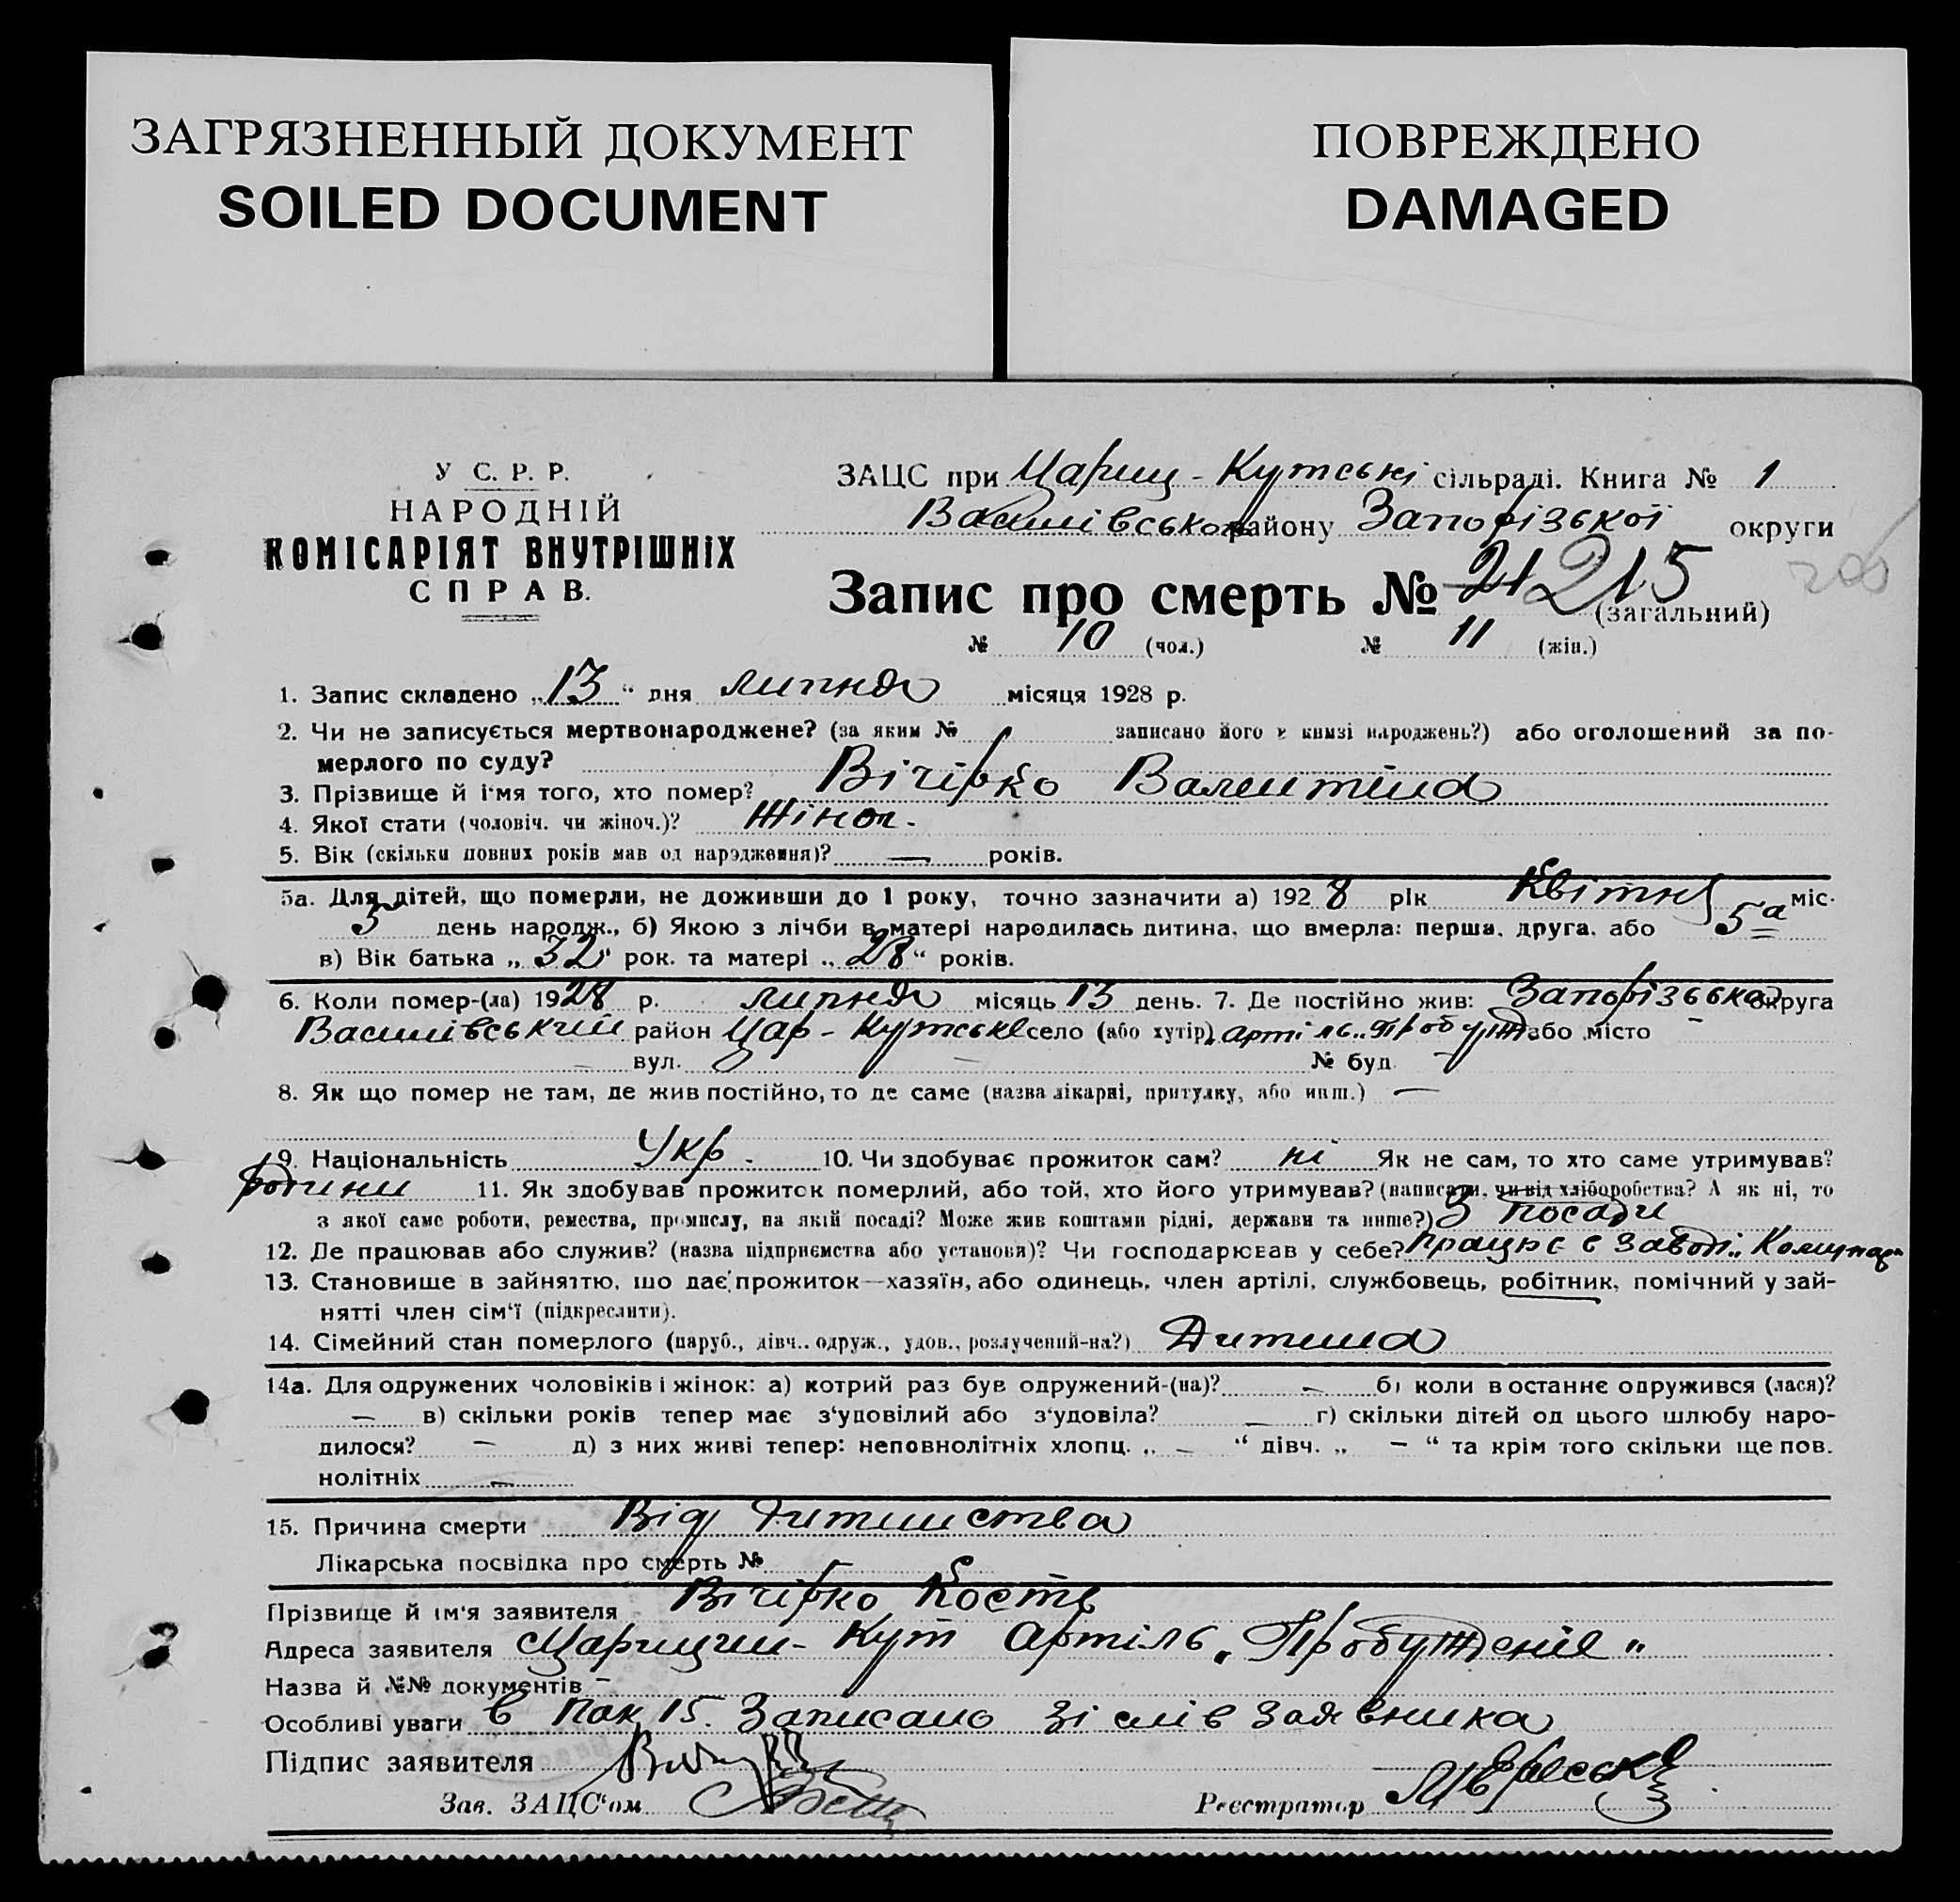 ЗАГРЯЗНЕННЫЙ ДОКУМЕНТ
SOILED DOCUMENT
ПОВРЕЖДЕНО
DAMAGED
У С. Р. Р.
НАРОДНІЙ
КОМІСАРІЯТ ВНУТРІШНІХ
СПРАВ.
ЗАЦС при Цариц-Кутські сільраді. Книга № 1
Василівського району Запорізької округи
Запис про смерть № 21 215 (загальний)
200
№ 10 (чол.) № 11 (жін.)
1. Запис складено „13“ дня липня місяця 1928 р.
2. Чи не записується мертвонароджене? (за яким № записано його в книзі народжень?) або оголошений за по-
мерлого по суду?
3. Прізвище й і'мя того, хто помер? Вічірко Валентина
4. Якої стати (чоловіч. чи жіноч.)? Жіноч.
5. Вік (скільки повних років мав од народження)? — років.
5а. Для дітей, що померли, не доживши до 1 року, точно зазначити а) 1928 рік Квітня міс.
5 день народж., б) Якою з лічби в матері народилась дитина, що вмерла: перша, друга, або 5а
в) Вік батька „32“ рок. та матері „28“ років.
6. Коли помер-(ла) 1928 р. липня місяць 13 день. 7. Де постійно жив: Запорізька округа
Василівський район Цар-Кутське село (або хутір) артіль „Пробужд або місто –
– вул. – № буд. –
8. Як що помер не там, де жив постійно, то де саме (назва лікарні, притулку, або инш.) —
9. Національність Укр. 10. Чи здобуває прожиток сам? ні Як не сам, то хто саме утримував?
родини 11. Як здобував прожиток померлий, або той, хто його утримував? (написати, чи від хліборобства? А як ні, то
з якої саме роботи, ремества, промислу, на якій посаді? Може жив коштами рідні, держави та инше?) З посади
12. Де працював або служив? (назва підприємства або установи)? Чи господарював у себе? працює в заводі „Комунар
13. Становище в зайняттю, що дає прожиток—хазяїн, або одинець, член артілі, службовець, робітник, помічний у зай-
нятті член сім'ї (підкреслити).
14. Сімейний стан померлого (паруб., дівч., одруж., удов., розлучений-на?) Дитина
14а. Для одружених чоловіків і жінок: а) котрий раз був одружений-(на)? – б) коли в останнє одружився (лася)?
– в) скільки років тепер має з'удовілий або з'удовіла? – г) скільки дітей од цього шлюбу наро-
дилося? – д) з них живі тепер: неповнолітніх хлопц. „ – “ дівч. „ – “ та крім того скільки ще пов.
нолітніх –
15. Причина смерти Від дитинства
Лікарська посвідка про смерть № –
Прізвище й ім'я заявителя Вічірко Кость
Адреса заявителя Царицин-Кут Артіль „Пробужденіе“
Назва й №№ документів –
Особливі уваги В пак 15. Записано зі слів заявника
Підпис заявителя
Зав. ЗАЦС'ом Реєстратор